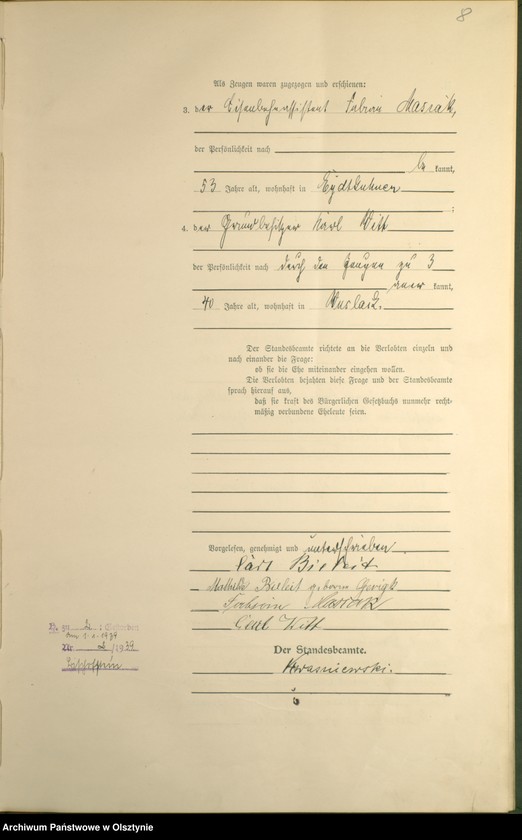 8
Als Zeugen waren zugezogen und erschienen:
3. der Eisenbahnassistent Fabian Masiak,
der Persönlichkeit nach
be kannt,
53 Jahre alt, wohnhaft in Eydtkuhnen
;
4. der Grundbesitzer Karl Witt
der Persönlichkeit nach durch den Zeugen zu 3
aner kannt,
40 Jahre alt, wohnhaft in Wuslack.
Der Standesbeamte richtete an die Verlobten einzeln und
nach einander die Frage:
ob sie die Ehe miteinander eingehen wollen.
Die Verlobten bejahten diese Frage und der Standesbeamte
sprach hierauf aus,
daß sie kraft des Bürgerlichen Gesetzbuchs nunmehr recht-
mäßig verbundene Eheleute seien.
Vorgelesen, genehmigt und unterschrieben.
Karl
Mathilde geborene
Masiak
Carl Witt
Der Standesbeamte.
Kwasniewski.
Nr. 2 /1939
Bischofstein
Archiwum Państwowe w Olsztynie